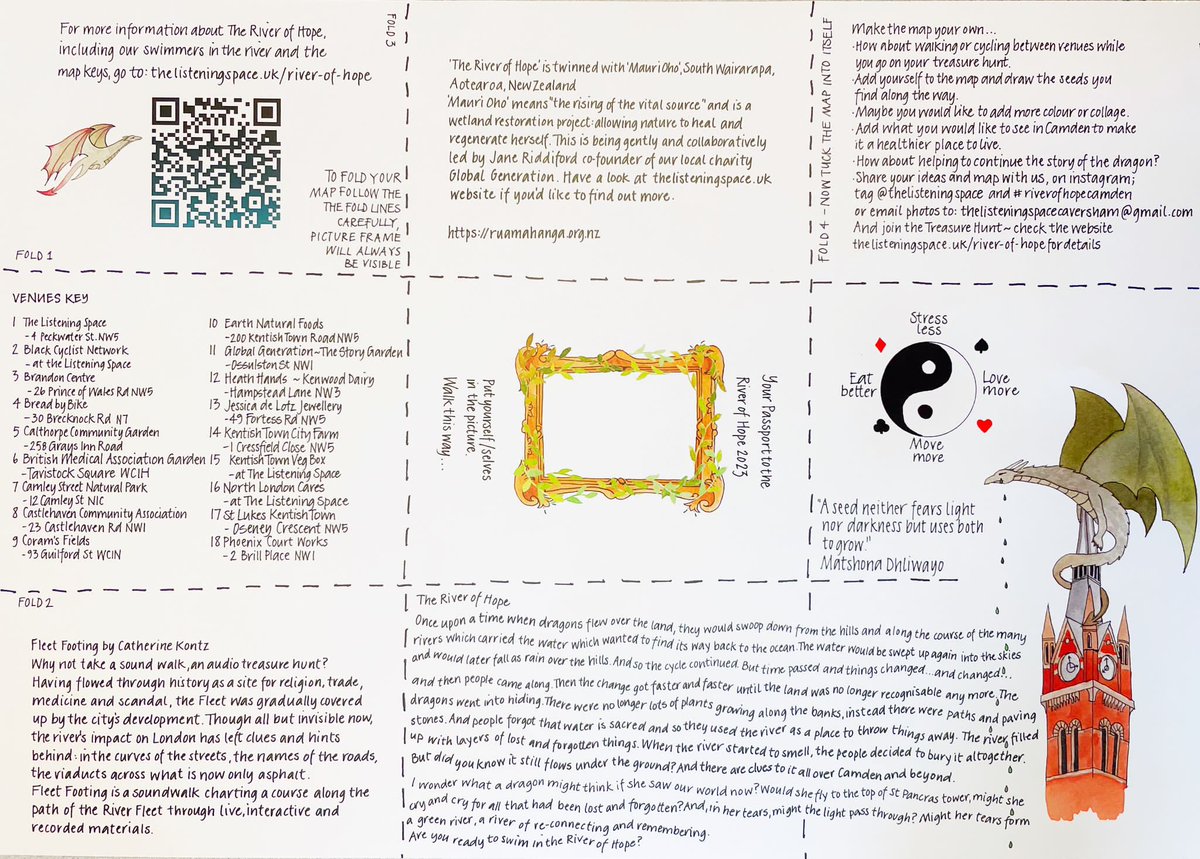 For more information about The River of Hope,
including our swimmers in the river and the
map keys, go to: thelisteningspace.uk/river-of-hope
TO FOLD YOUR
MAP FOLLOW THE
THE FOLD LINES
CAREFULLY,
PICTURE FRAME
WILL ALWAYS
BE VISIBLE
FOLD 1
FOLD 3
'The River of Hope' is twinned with 'Mauri Oho', South Wairarapa,
Aotearoa, New Zealand
'Mauri Oho' means "the rising of the vital source" and is a
wetland restoration project: allowing nature to heal and
regenerate herself. This is being gently and collaboratively
led by Jane Riddiford co-founder of our local charity
Global Generation. Have a look at thelisteningspace.uk
website if you'd like to find out more.
https://ruamahanga.org.nz
FOLD 4 - NOW TUCK THE MAP INTO ITSELF
Make the map your own...
·How about walking or cycling between venues while
you go on your treasure hunt.
·Add yourself to the map and draw the seeds you
find along the way.
·Maybe you would like to add more colour or collage.
·Add what you would like to see in Camden to make
it a healthier place to live.
·How about helping to continue the story of the dragon?
·Share your ideas and map with us, on instagram;
tag @thelisteningspace and #riverofhopecamden
or email photos to: thelisteningspacecaversham@gmail.com
And join the Treasure Hunt~ check the website
thelisteningspace.uk/river-of-hope for details
VENUES KEY
1 The Listening Space
- 4 Peckwater St. NW5
2 Black Cyclist Network
- at the Listening Space
3 Brandon Centre
- 26 Prince of Wales Rd NW5
4 Bread by Bike
- 30 Brecknock Rd N7
5 Calthorpe Community Garden
- 258 Grays Inn Road
6 British Medical Association Garden
- Tavistock Square WC1H
7 Camley Street Natural Park
- 12 Camley St N1C
8 Castlehaven Community Association
- 23 Castlehaven Rd NW1
9 Coram's Fields
- 93 Guilford St WC1N
10 Earth Natural Foods
- 200 Kentish Town Road NW5
11 Global Generation~The Story Garden
- Ossulston St NW1
12 Heath Hands ~ Kenwood Dairy
- Hampstead Lane NW3
13 Jessica de Lotz Jewellery
- 49 Fortess Rd NW5
14 Kentish Town City Farm
- 1 Cressfield Close NW5
15 Kentish Town Veg Box
- at The Listening Space
16 North London Cares
- at The Listening Space
17 St Lukes Kentish Town
- Oseney Crescent NW5
18 Phoenix Court Works
- 2 Brill Place NW1
Put yourself/selves
in the picture.
Walk this way...
Your Passport to the
River of Hope 2023
Stress
less
Eat
better
Love
more
Move
more
"A seed neither fears light
nor darkness but uses both
to grow."
Matshona Dhliwayo
FOLD 2
Fleet Footing by Catherine Kontz
Why not take a sound walk, an audio treasure hunt?
Having flowed through history as a site for religion, trade,
medicine and scandal, the Fleet was gradually covered
up by the city's development. Though all but invisible now,
the river's impact on London has left clues and hints
behind: in the curves of the streets, the names of the roads,
the viaducts across what is now only asphalt.
Fleet Footing is a soundwalk charting a course along the
path of the River Fleet through live, interactive and
recorded materials.
The River of Hope
Once upon a time when dragons flew over the land, they would swoop down from the hills and along the course of the many
rivers which carried the water which wanted to find its way back to the ocean. The water would be swept up again into the skies
and would later fall as rain over the hills. And so the cycle continued. But time passed and things changed...and changed...
and then people came along. Then the change got faster and faster until the land was no longer recognisable any more. The
dragons went into hiding. There were no longer lots of plants growing along the banks, instead there were paths and paving
stones. And people forgot that water is sacred and so they used the river as a place to throw things away. The river filled
up with layers of lost and forgotten things. When the river started to smell, the people decided to bury it altogether.
But did you know it still flows under the ground? And there are clues to it all over Camden and beyond.
I wonder what a dragon might think if she saw our world now? Would she fly to the top of St Pancras tower, might she
cry and cry for all that had been lost and forgotten? And, in her tears, might the light pass through? Might her tears form
a green river, a river of re-connecting and remembering.
Are you ready to swim in the River of Hope?